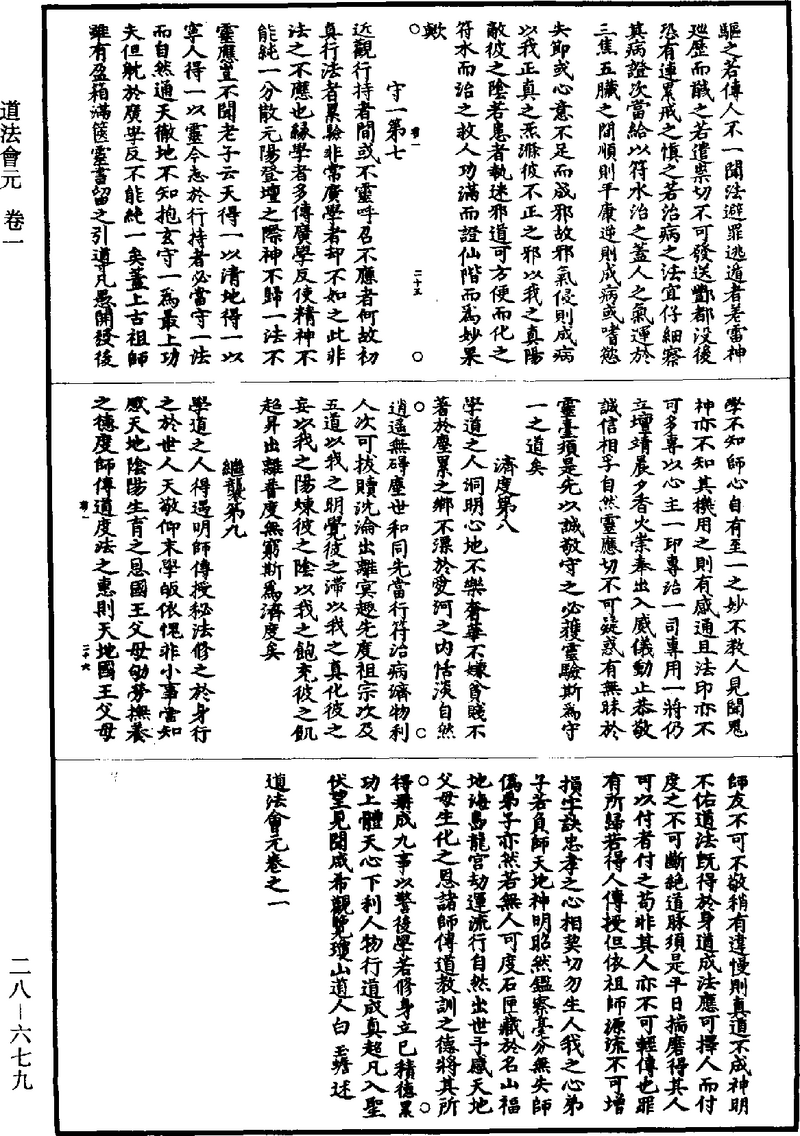 道法會元　卷一
二八—六七九
驅之若傳人不一聞法避罪逃遁者差雷神
巡歷而馘之若遣祟切不可發送酆都没後
恐有連累戒之慎之若治病之法宜仔細察
其病證次當給以符水治之蓋人之氣運於
三焦五臟之間順則平康逆則成病或嗜慾
失節或心意不足而成邪故邪氣侵則成病
以我正真之炁滌彼不正之邪以我之真陽
敵彼之陰若患者執迷邪道可方便而化之
符水而治之救人功滿而證仙階而爲妙果
歟
守一第七
近觀行持者間或不靈呼召不應者何故初
真行法者累驗非常廣學者却不如之此非
法之不應也緣學者多傳廣學反使精神不
能純一分散元陽登壇之際神不歸一法不
靈應豈不聞老子云天得一以清地得一以
寧人得一以靈今志於行持者必當守一法
而自然通天徹地不知抱玄守一爲最上功
夫但躭於廣學反不能純一矣蓋上古祖師
雖有盈箱滿篋靈書留之引導凡愚開發後
學不知師心自有至一之妙不教人見聞鬼
神亦不知其機用之則有感通且法印亦不
可多專以心主一印專治一司專用一將仍
立壇靖晨夕香火崇奉出入威儀動止恭敬
誠信相孚自然靈應切不可疑惑有無昧於
靈臺須是先以誠敬守之必獲靈驗斯爲守
一之道矣
濟度第八
學道之人洞明心地不樂奢華不嫌貧賤不
著於塵累之鄉不漂於愛河之内恬淡自然
逍遙無碍塵世和同先當行符治病濟物利
人次可拔贖沈淪出離冥趣先度祖宗次及
五道以我之明覺彼之滯以我之真化彼之
妄以我之陽煉彼之陰以我之飽充彼之飢
超昇出離普度無窮斯爲濟度矣
繼襲第九
學道之人得遇明師傳授秘法修之於身行
之於世人天敬仰末學皈依愧非小事當知
感天地陰陽生育之恩國王父母劬勞撫養
之德度師傳道度法之惠則天地國王父母
師友不可不敬稍有違慢則真道不成神明
不佑道法既得於身道成法應可擇人而付
度之不可斷絶道脉須是平日揣磨得其人
可以付者付之苟非其人亦不可輕傳也罪
有所歸若得人傳授但依祖師源流不可增
損字訣忠孝之心相契切勿生人我之心弟
子若負師天地神明昭然鑑察毫分無失師
僞弟子亦然若無人可度石匣藏於名山福
地海島龍宮劫運流行自然出世予感天地
父母生化之恩諸師傳道教訓之德將其所
得冊成九事以警後學若修身立己積德累
功上體天心下利人物行道成真超凡入聖
伏望見聞咸希觀覽瓊山道人白玉蟾述
道法會元卷之一